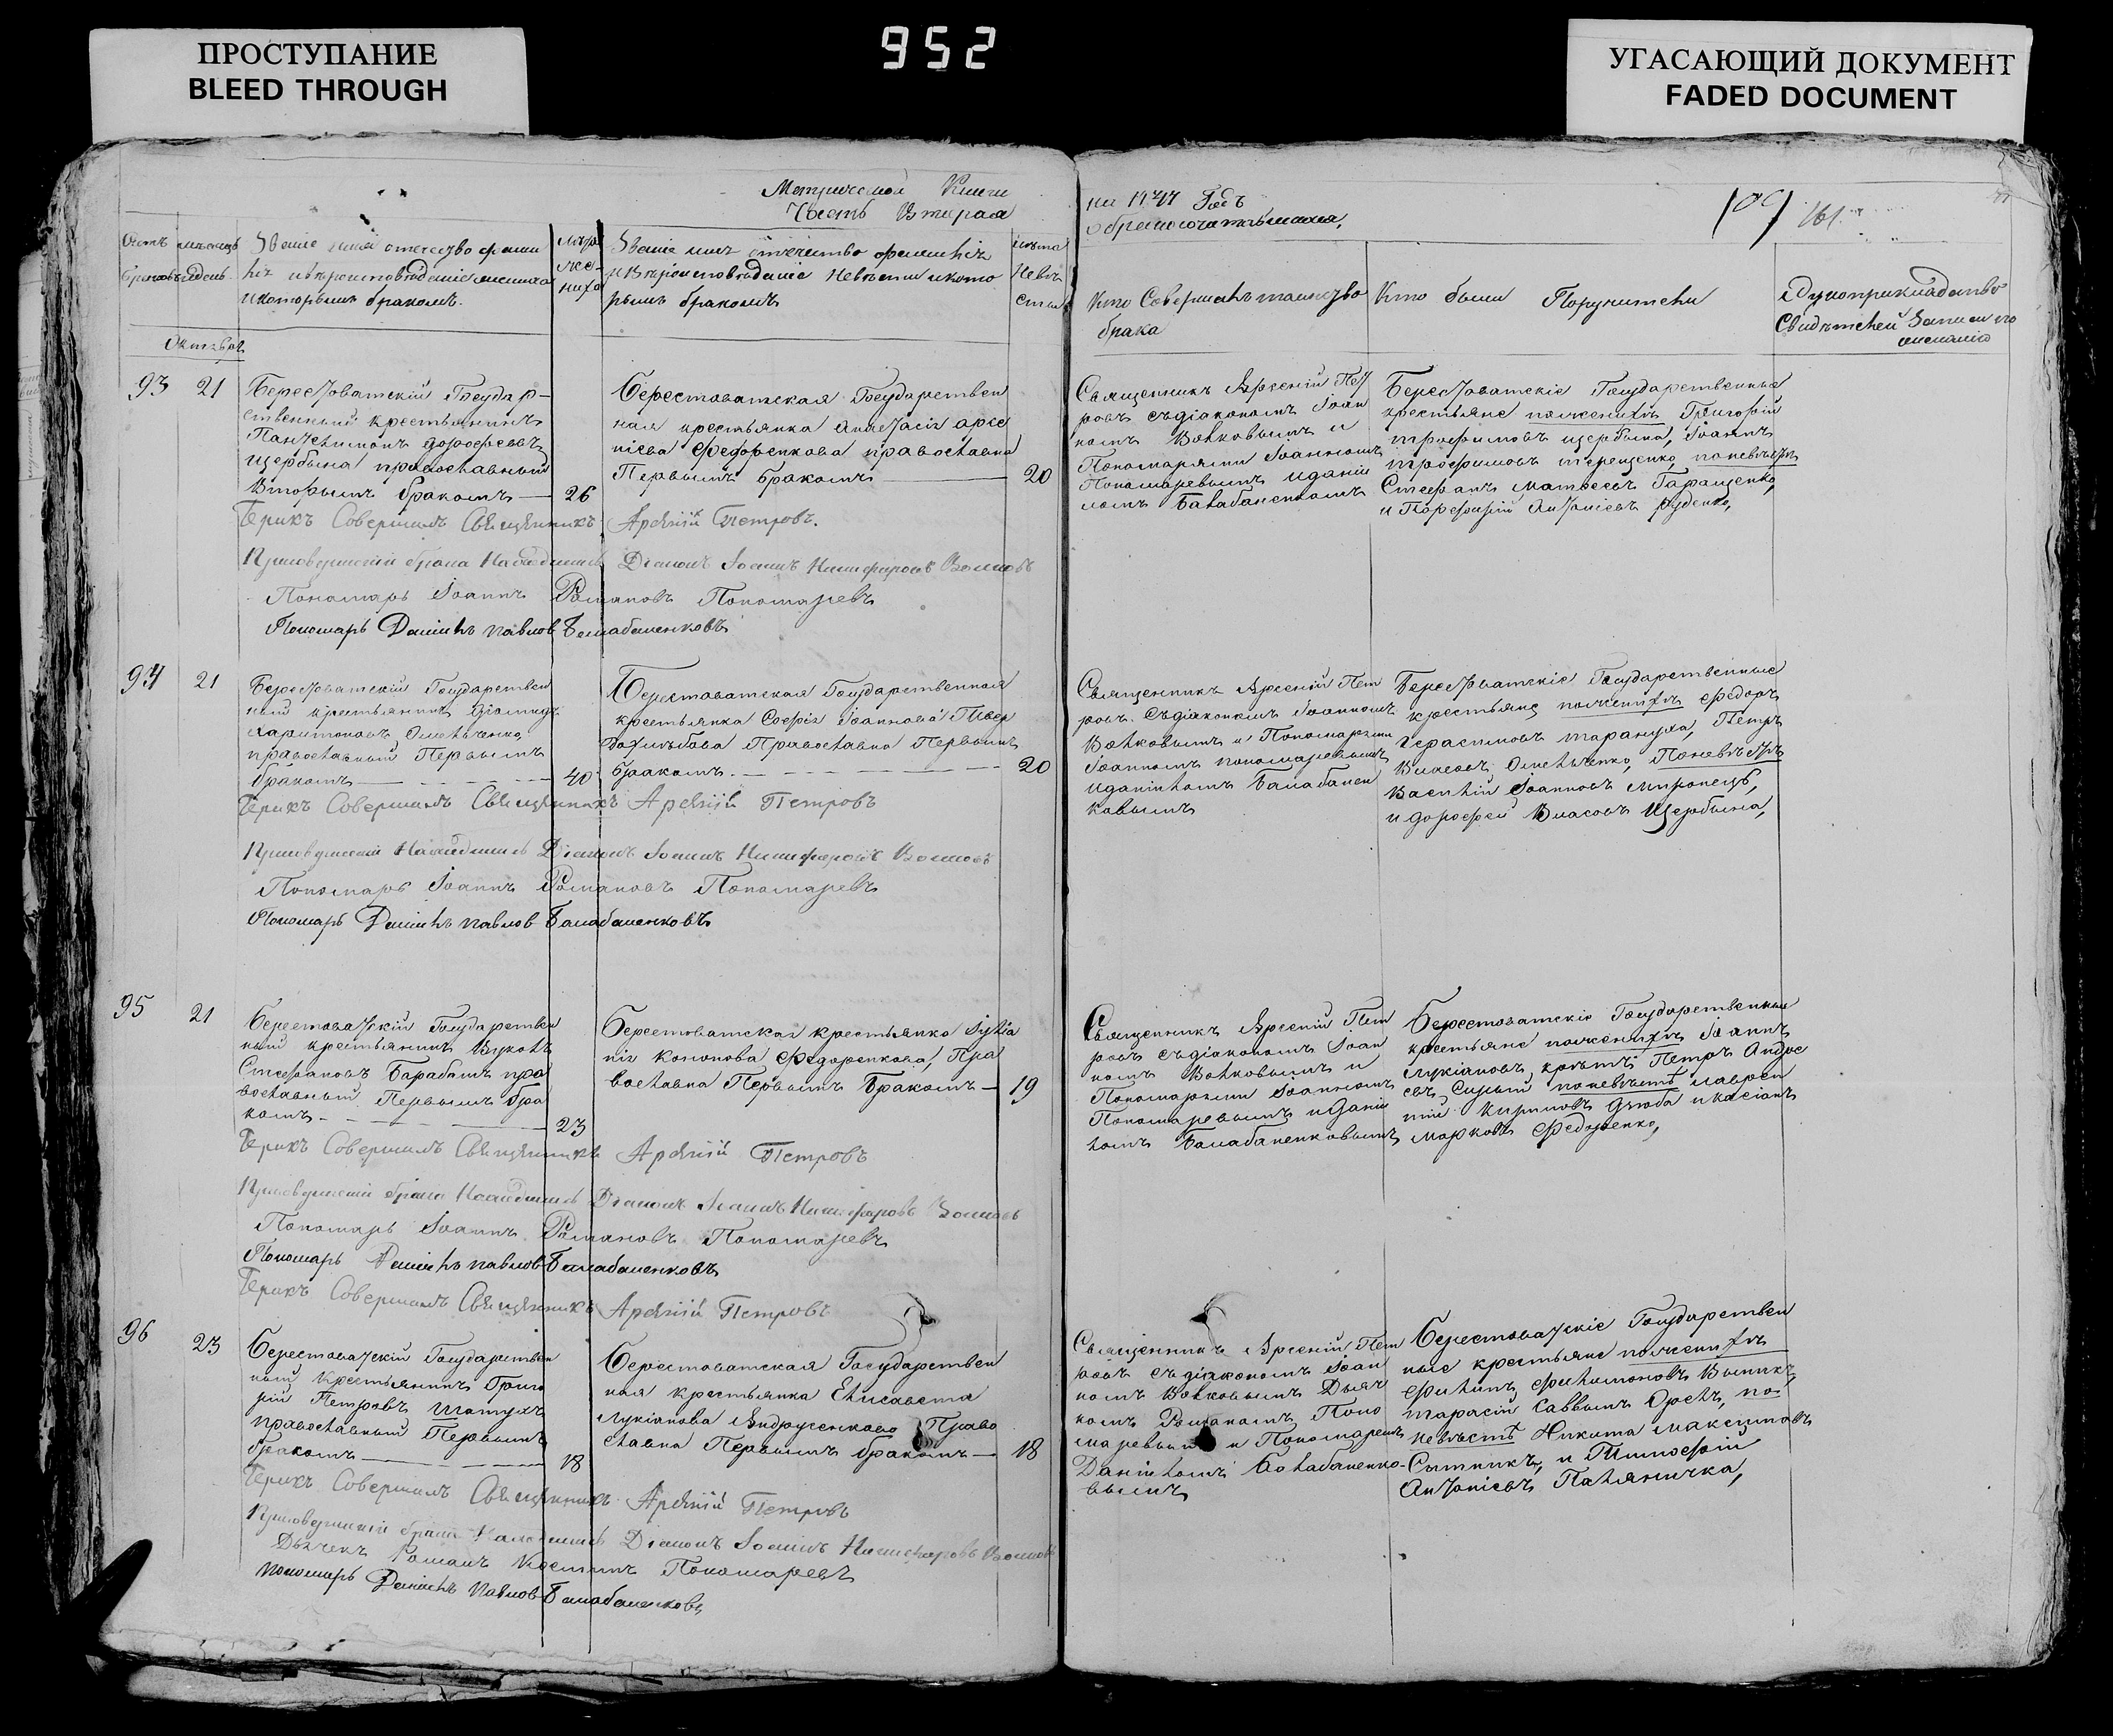 ПРОСТУПАНИЕ
BLEED THROUGH
952
УГАСАЮЩИЙ ДОКУМЕНТ
FADED DOCUMENT
Метрической Книги
Часть Вторая
на 1847 Годъ
о бракосочетавшихся,
109
161
Званіе имя отечество фами
лія и вѣроисповѣданіе жениха
и которымъ бракомъ.
лѣта
же-
ниха
Званіе имя отечество фамилія
и Вѣроисповѣданіе Невѣсты и кото
рымъ бракомъ
лѣта
Невѣ
сты
Кто Совершалъ таинство
брака
Кто были Поручители
Рукоприкладство
Свидѣтелей Записи по
желанію
Октябрь
93 21
Берестоватскій Государ-
ственный крестьянинъ
Пантелимонъ дорофеевъ
щербина православный
Вторымъ бракомъ — 26
Берестоватская Государствен
ная крестьянка Анастасія арсе
ніева Федоренкова православна
Первымъ бракомъ — 20
Священникъ Арсеній Пет
ровъ съ діакономъ Іоан
номъ Волковымъ и
Пономарями Іоанномъ
Пономаревымъ и Даніи
ломъ Балабаненкомъ
Берестоватскіе Государственные
крестьяне по женихѣ Григорій
трофимовъ щербина, Іоаннъ
трофимовъ терещенко, по невѣстѣ
Стефанъ матвеевъ Геращенко,
и Порфирій Антоніевъ руденко,
Бракъ Совершалъ Священникъ Арсеній Петровъ.
При совершеніи брака Находились Діаконъ Іоаннъ Никифоровъ Волковъ
Пономарь Іоаннъ Романовъ Пономаревъ
Пономарь Даніилъ павловъ Балабаненковъ
94 21
Берестоватскій Государствен
ный крестьянинъ діомидъ
харитоновъ Омельченко
православный Первымъ
бракомъ — 40
Берестоватская Государственная
крестьянка Софія Іоаннова Пивер
Православна Первымъ
бракомъ. — 20
Священникъ Арсеній Пет
ровъ. Съ діакономъ Іоанномъ
Волковымъ и Пономарями
Іоанномъ пономаревымъ
и даніиломъ Балабанен
ковымъ
Берестоватскіе Государственные
крестьяне по женихѣ федоръ
герасимовъ тарануха, Петръ
Власовъ Омельченко, По невѣстѣ
Василій Іоанновъ миронецъ,
и дорофей Власовъ Щербина,
Бракъ Совершалъ Священникъ Арсеній Петровъ
При совершеніи Находились Діаконъ Іоаннъ Никифоровъ Волковъ
Пономарь Іоаннъ Романовъ Пономаревъ
Пономарь Даніилъ павловъ Балабаненковъ
95 21
Берестоватскій Государствен
ный крестьянинъ Вуколъ
Стефановъ Барабашъ пра
вославный Первымъ бра
комъ — 23
Берестоватская крестьянка
Кононова Федоренкова, Пра
вославна Первымъ бракомъ — 19
Священникъ Арсеній Пет
ровъ съ діакономъ Іоан
номъ Волковымъ и
Пономарями Іоанномъ
Пономаревымъ и Даніи
ломъ Балабаненковымъ
Берестоватскіе Государственные
крестьяне по женихѣ Іоаннъ
лукіановъ Петръ Андре
евъ, Сирый по невѣстѣ лаврен
тій Кириловъ Дзюба и касіанъ
марковъ Федоренко,
Бракъ Совершалъ Священникъ Арсеній Петровъ
При совершеніи брака Находились Діаконъ Іоаннъ Никифоровъ Волковъ
Пономарь Іоаннъ Романовъ Пономаревъ
Пономарь Даніилъ павловъ Балабаненковъ
Бракъ Совершалъ Священникъ Арсеній Петровъ
96 23
Берестоватскій Государствен
ный Крестьянинъ Григо
рій Петровъ
православный Первымъ
бракомъ — 18
Берестоватская Государствен
ная крестьянка Елисавета
лукіанова Андрусенкова Право
славна Первымъ бракомъ — 18
Священникъ Арсеній Пет
ровъ съ діакономъ Іоан
номъ Волковымъ Дьяч
комъ Романомъ Поно
маревымъ и Пономаремъ
Даніиломъ Балабаненко-
вымъ
Берестоватскіе Государствен
ные крестьяне по женихѣ
филипъ филимоновъ
тарасій Саввинъ Орелъ, по
невѣстѣ Никита максимовъ
Сытникъ, и Тимофей
Антоніевъ Паляничка,
Бракъ Совершалъ Священникъ Арсеній Петровъ
При совершеніи брака Находились Діаконъ Іоаннъ Никифоровъ Волковъ
Дьячекъ Романъ Пономаревъ
Пономарь Даніилъ Павловъ Балабаненковъ